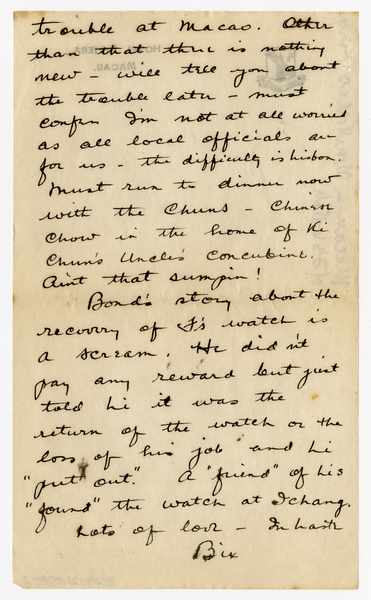 trouble at Macao. Other
than that there is nothing
new – will tell you about
the trouble later – must
confess I'm not at all worried
as all local officials are
for us – the difficulty is Lisbon.
Must run to dinner now
with the Chuns – Chinese
Chow in the home of Ki
Chun's Uncle's Concubine.
Aint that sumpin!
Bond's story about the
recovery of F's watch is
a scream. He didn't
pay any reward but just
told hi it was the
return of the watch or the
loss of his job and hi
"put out." A "friend" of his
"found" the watch at Ichang.
Lots of love – In haste
Bix
MACAU.